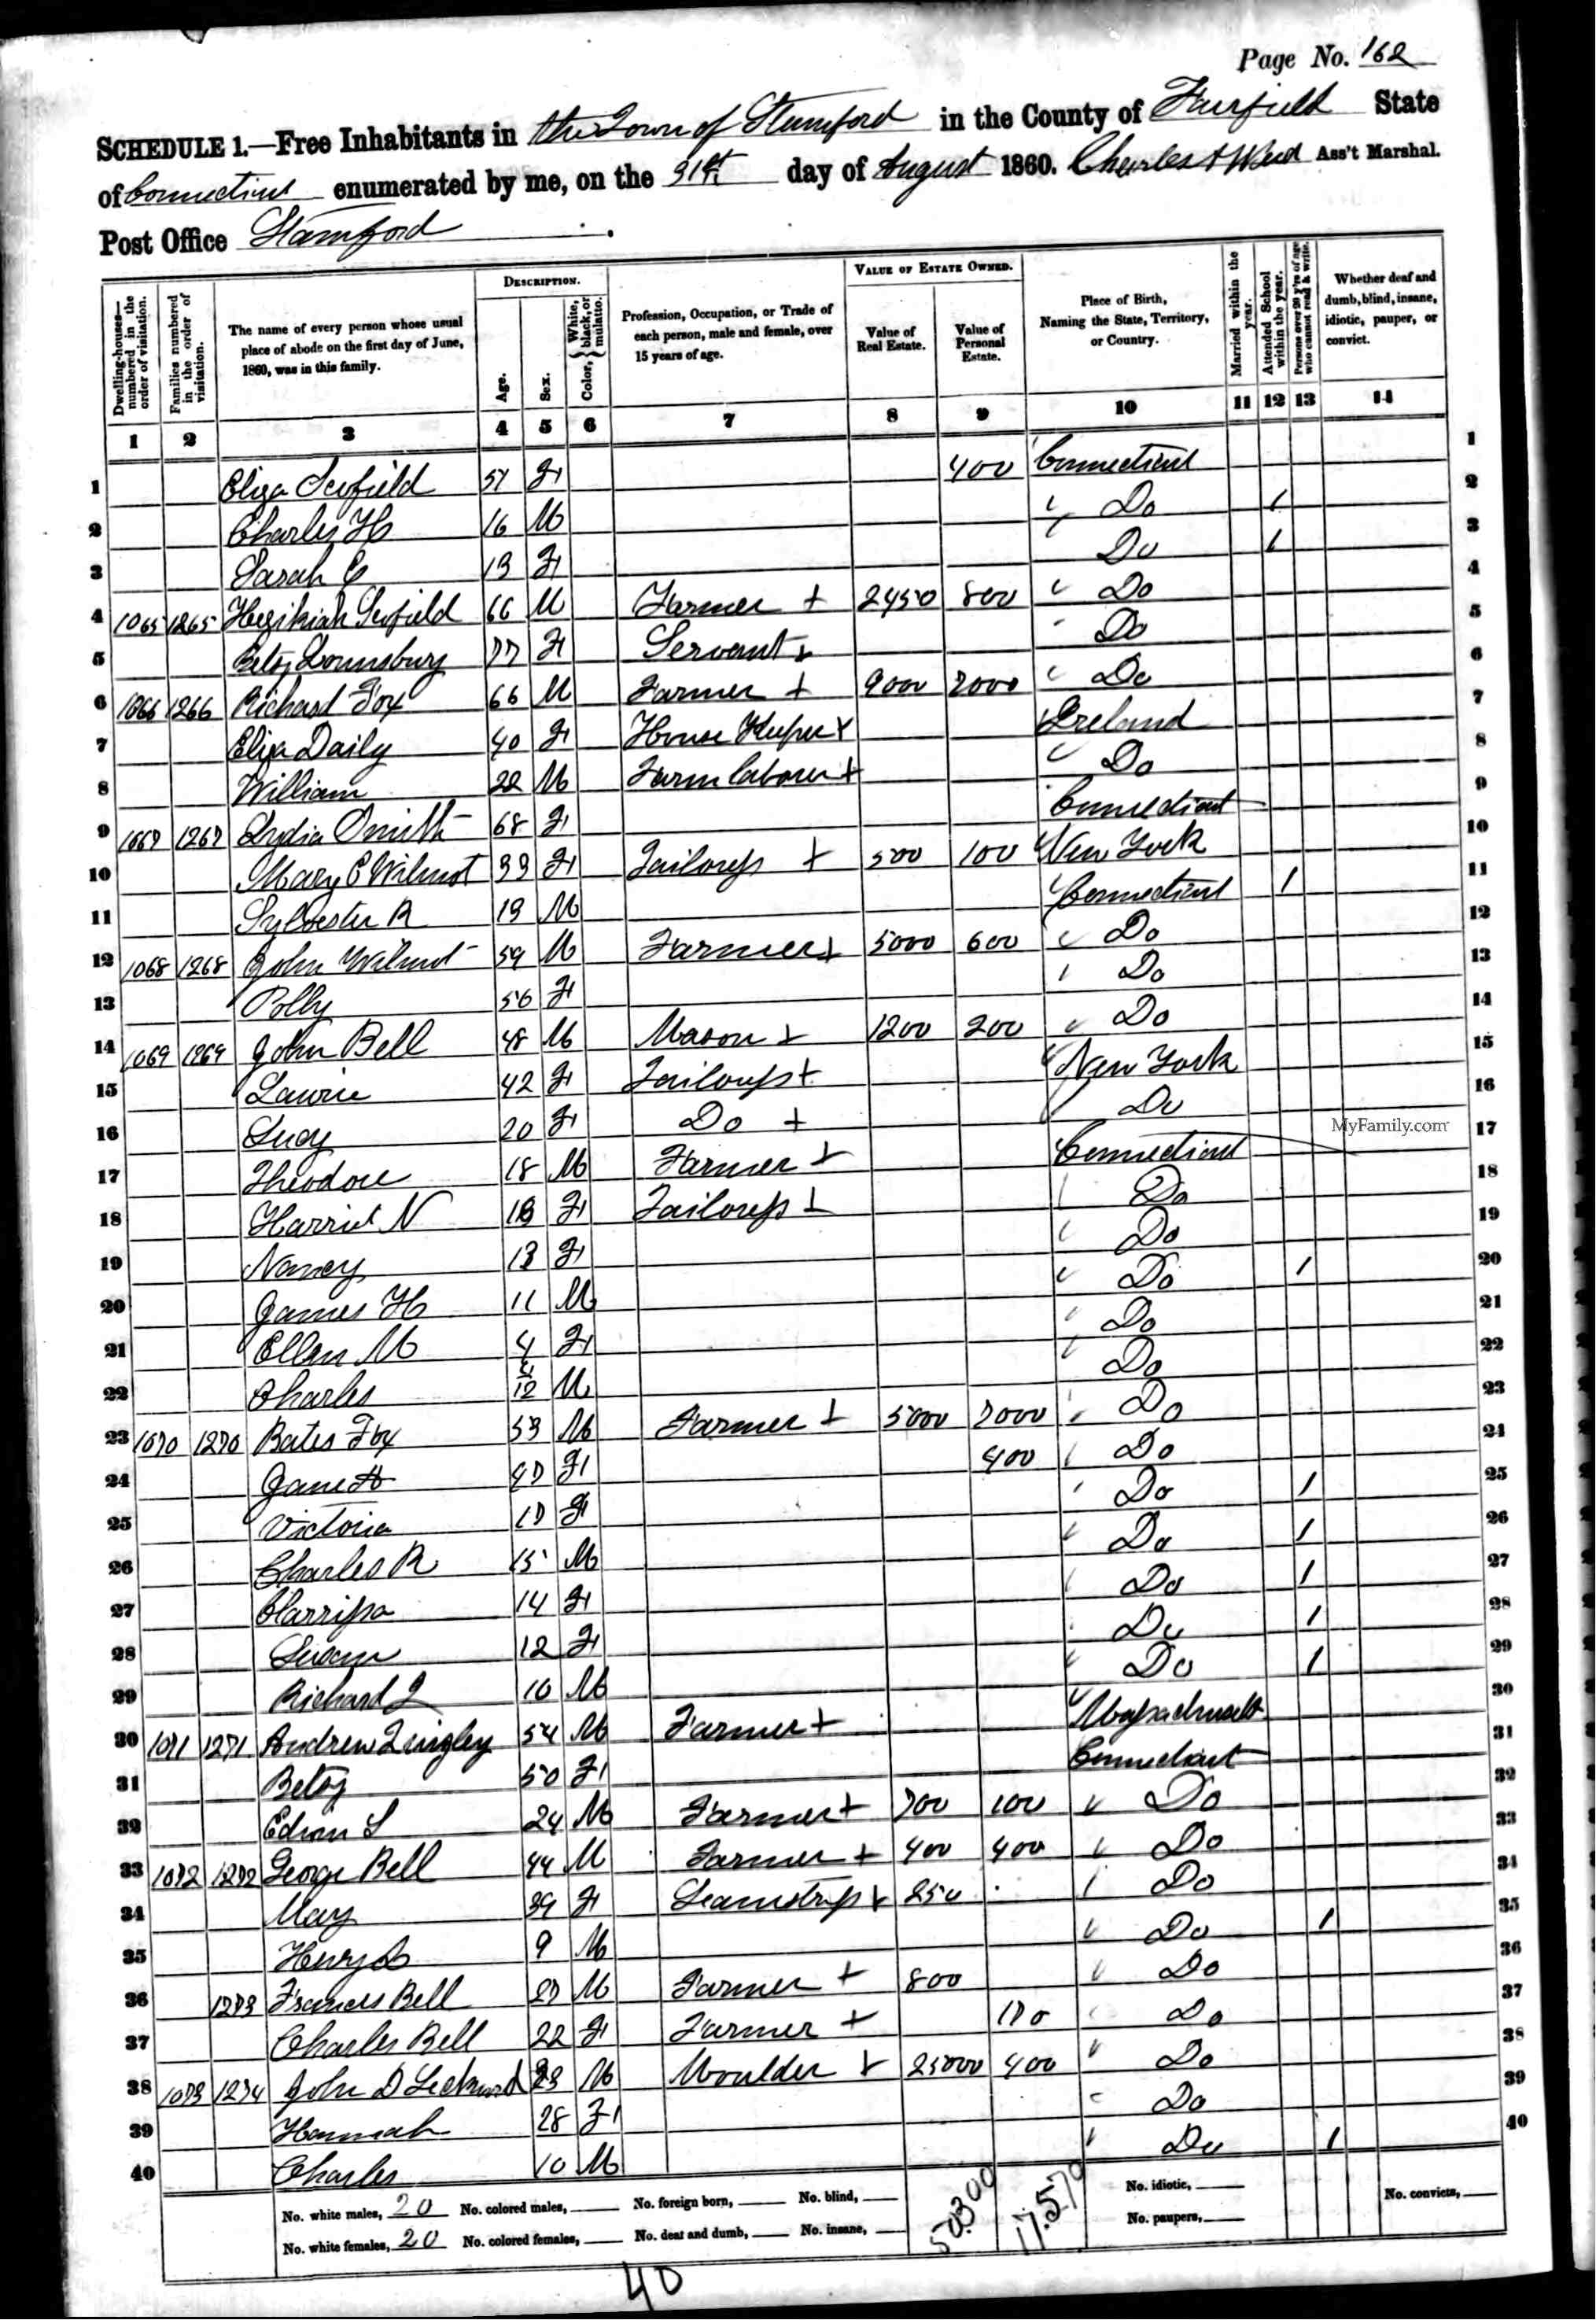 Page No. 162
SCHEDULE 1.—Free Inhabitants in the Town of Stamford in the County of Fairfield State
of Connecticut enumerated by me, on the 31st day of August 1860. Charles A Weed Ass't Marshal.
Post Office Stamford
DESCRIPTION. VALUE OF ESTATE OWNED.
Dwelling-houses—numbered in the order of visitation. Families numbered in the order of visitation. The name of every person whose usual place of abode on the first day of June, 1860, was in this family. Age. Sex. Color, White, black, or mulatto. Profession, Occupation, or Trade of each person, male and female, over 15 years of age. Value of Real Estate. Value of Personal Estate. Place of Birth, Naming the State, Territory, or Country. Married within the year. Attended School within the year. Persons over 20 y'rs of age who cannot read & write. Whether deaf and dumb, blind, insane, idiotic, pauper, or convict.
1 2 3 4 5 6 7 8 9 10 11 12 13 14
1 Eliza Scofield 57 F 400 Connecticut 1
2 Charles H 16 M Do / 2
3 Sarah E 13 F Do / 3
4 1065 1265 Hezikiah Scofield 66 M Farmer + 2450 800 Do 4
5 Betsy Lounsbury 77 F Servant + Do 5
6 1066 1266 Richard Fox 66 M Farmer + 9000 2000 Do 6
7 Eliza Daily 40 F House Keeper + Ireland 7
8 William 22 M Farm laborer + Do 8
9 1067 1267 Lydia Smith 68 F Connecticut 9
10 Mary E Wilmot 33 F Tailoress + 500 100 New York 10
11 Sylvester R 13 M Connecticut / 11
12 1068 1268 John Wilmot 59 M Farmer + 5000 600 Do 12
13 Polly 56 F Do 13
14 1069 1269 John Bell 48 M Mason + 1200 200 Do 14
15 Laurie 42 F Tailoress + New York 15
16 Lucy 20 F Do + Do 16
MyFamily.com
17 Theodore 18 M Farmer + Connecticut 17
18 Harriet N F Tailoress + Do 18
19 Nancy 13 F Do 19
20 James H 11 M Do / 20
21 Ellen M 4 F Do 21
22 Charles M Do 22
23 1070 1270 Bates Fox 53 M Farmer + 5000 7000 Do 23
24 Jane H 47 F 400 Do 24
25 Victoria 17 F Do / 25
26 Charles R 15 M Do / 26
27 Clarrissa 14 F Do / 27
28 Susan 12 F Do / 28
29 Richard L 10 M Do / 29
30 1071 1271 Andrew Tingley 54 M Farmer + Massachusetts 30
31 Betsy 50 F Connecticut 31
32 Edson S 24 M Farmer + 700 100 Do 32
33 1072 1272 George Bell 44 M Farmer + 400 400 Do 33
34 Mary 39 F Seamstress + 250 Do 34
35 Henry 9 M Do / 35
36 1273 Frances Bell 27 M Farmer + 800 Do 36
37 Charles Bell 22 F Farmer + 170 Do 37
38 1073 1274 John D M Moulder + 25000 400 Do 38
39 Hannah 28 F Do 39
40 Charles 10 M Do / 40
No. white males, 20 No. colored males, No. foreign born, No. blind, 50300 17.570 No. idiotic, No. convicts,
No. white females, 20 No. colored females, No. deaf and dumb, No. insane, No. paupers,
40